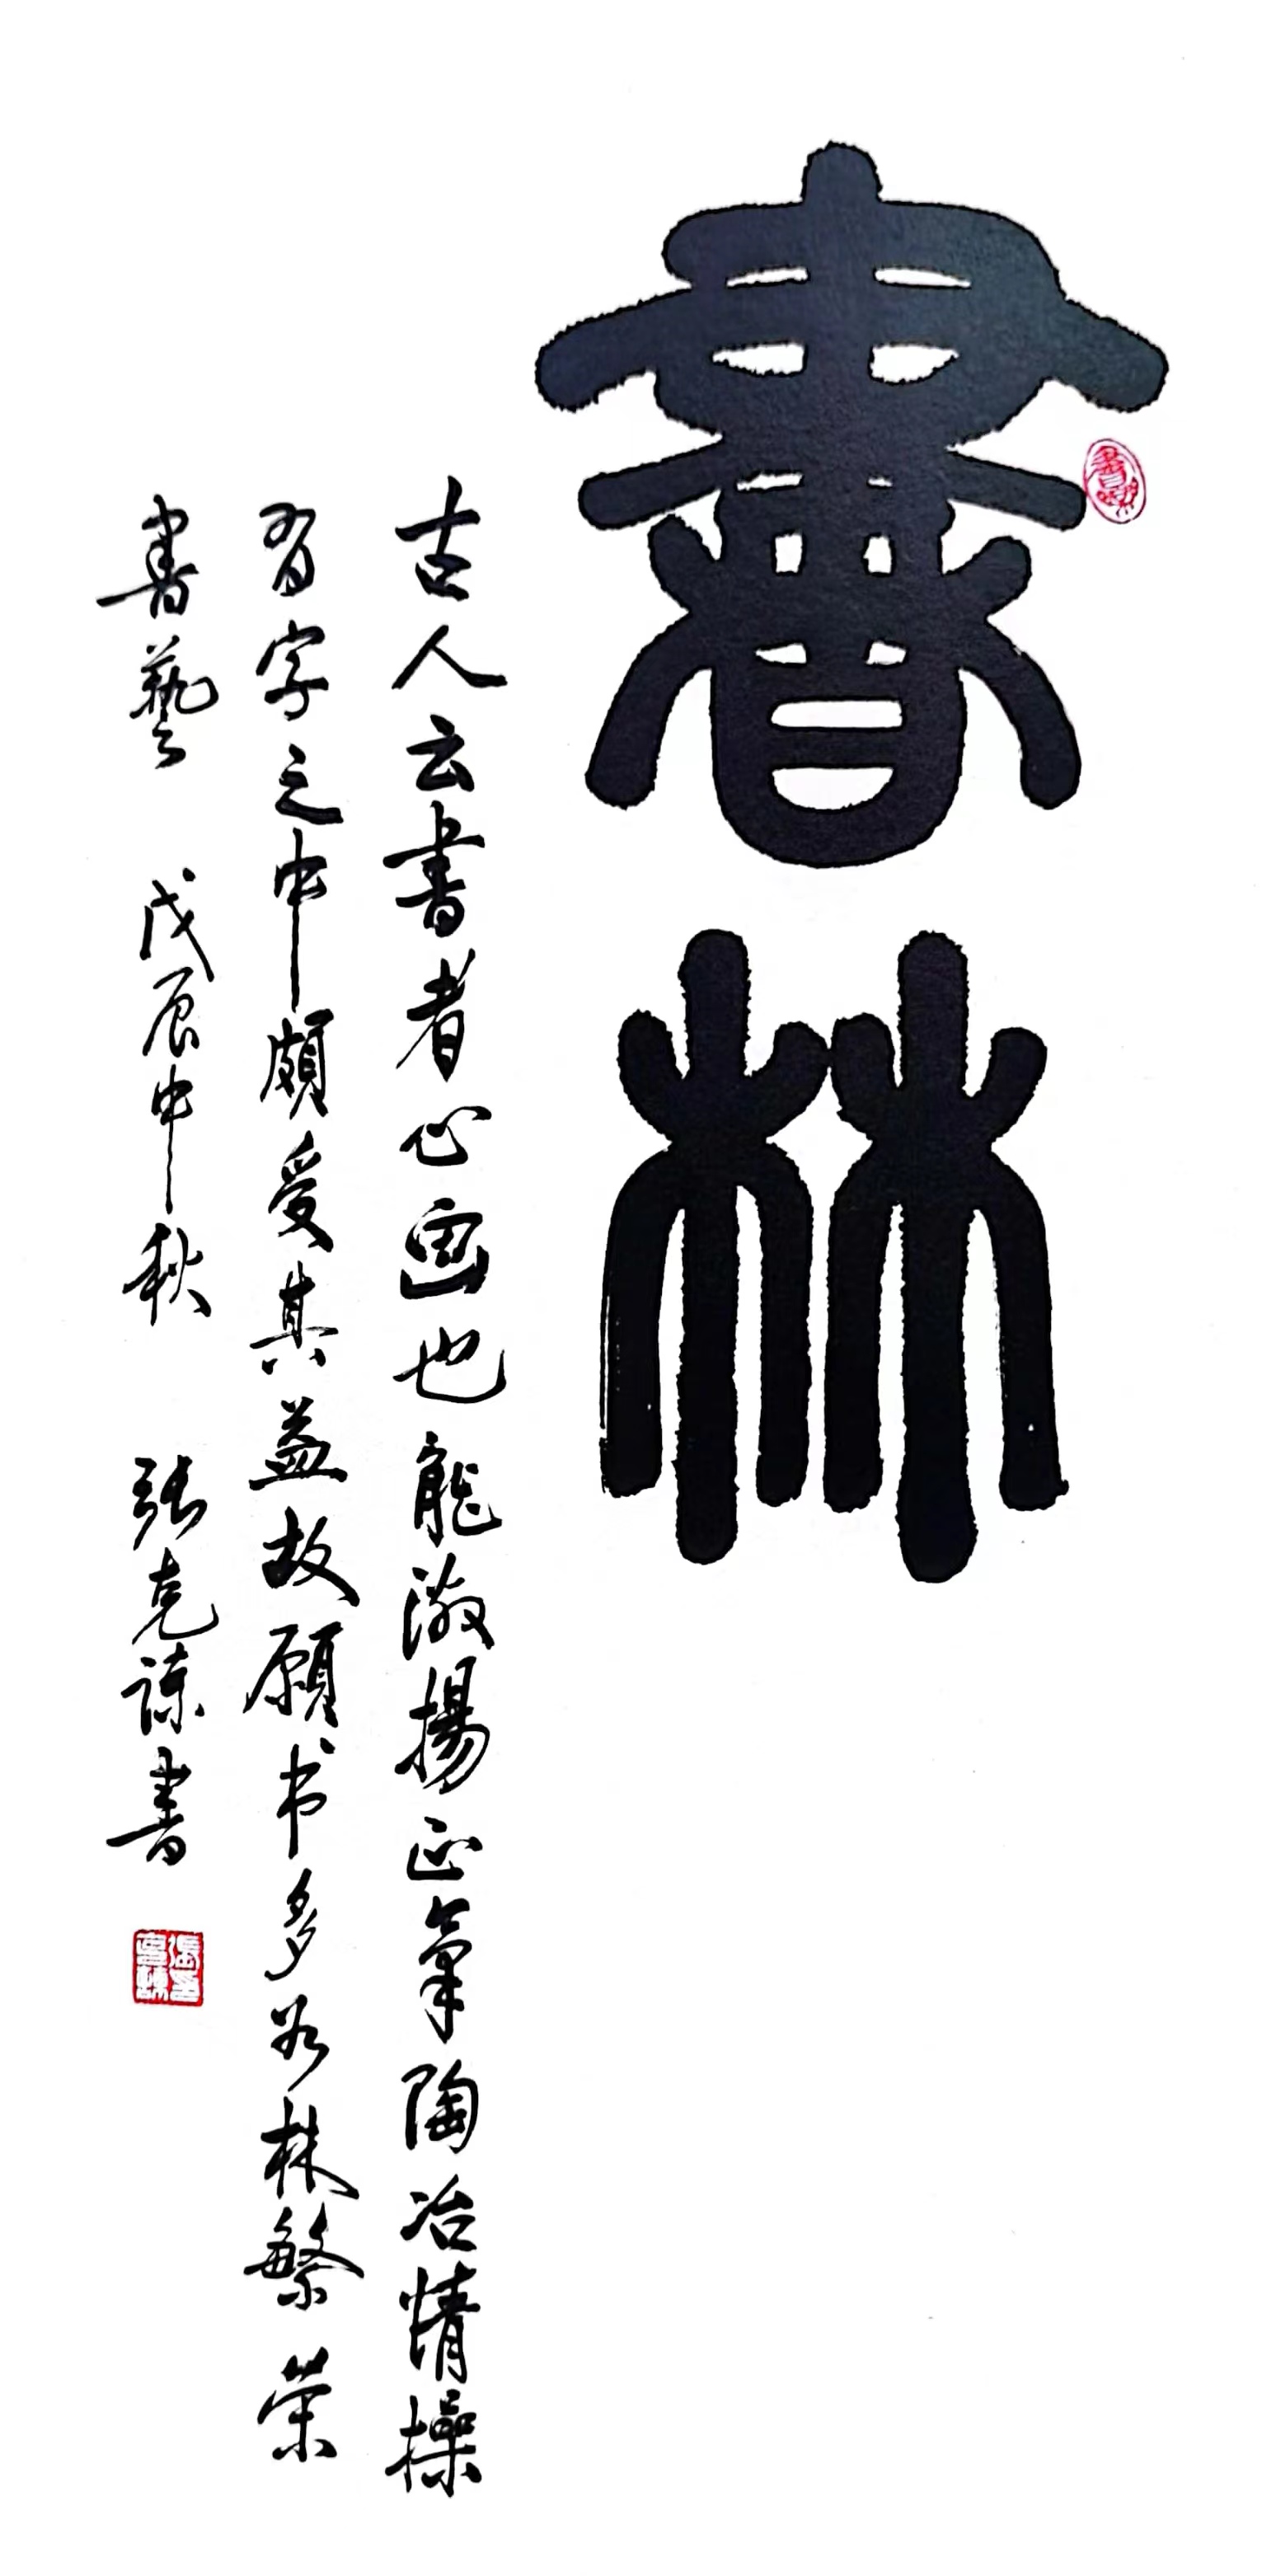 書林
古人云書者心画也能激揚正氣陶冶情操
習字之中頗受其益故願书多为株繁荣
書藝 戊辰中秋 張克諫書